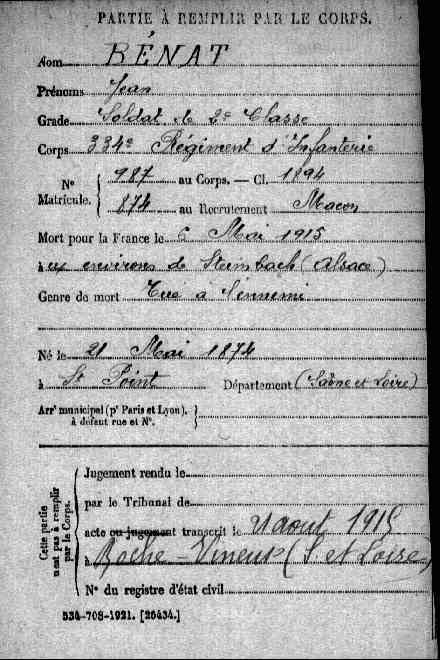 PARTIE À REMPLIR PAR LE CORPS.
Nom RÉNAT
Prénoms Jean
Grade Soldat de 2e Classe
Corps 334e Régiment d'Infanterie
N° Matricule. { 987 au Corps. — Cl. 1894
874 au Recrutement Macon
Mort pour la France le 6 Mai 1915
à ux environs de Steinbach (Alsace)
Genre de mort Tué à l'ennemi
Né le 21 Mai 1874
à St Point Département (Saône et Loire)
Arr' municipal (p' Paris et Lyon), à défaut rue et N°. }
Cette partie n'est pas à remplir par le Corps.
Jugement rendu le
par le Tribunal de
acte ou jugement transcrit le 21 aout 1915
Roche-Vineuse (S et Loire)
N° du registre d'état civil
534-708-1921. [26434.]